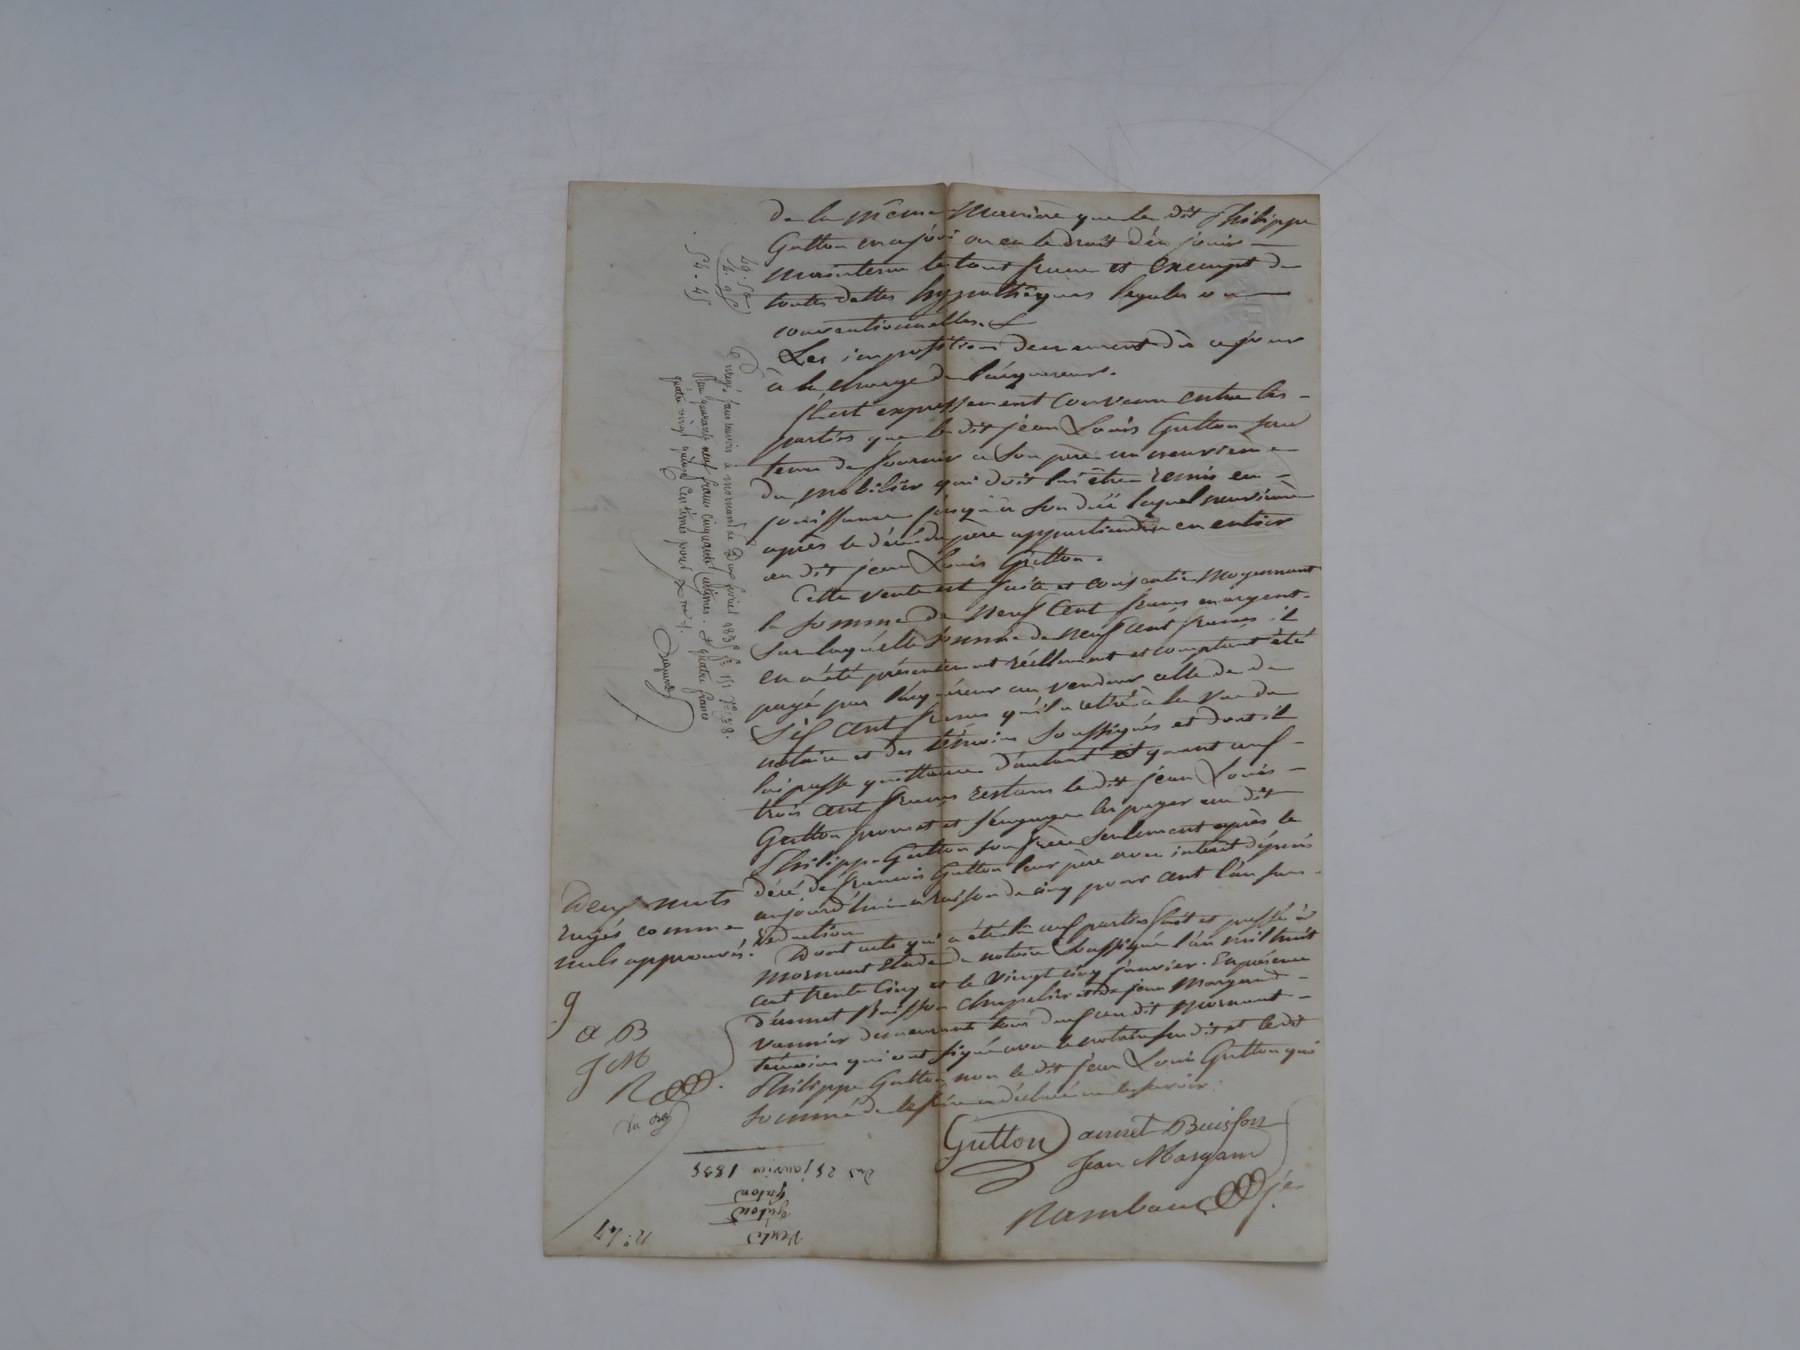 de la même manière que le dit Philippe
Gutton en a joui ou eu le droit d'en jouir
maintenu le tout franc et exempt de
toutes dettes hypothèques legales ou
conventionnelles.
Les impositions demeurent dès ce jour
à la charge de l'acquereur.
Il est expressement convenu entre les
parties que le dit jean Louis Gutton sera
tenu de fournir a son père un neuvième
du mobilier qui doit lui être remis en
jouissance jusqu'a son décé lequel neuvième
après le décé du père appartiendra en entier
au dit jean Louis Gutton.
Cette vente est faite et consentie moyennant
la somme de neuf cent francs en argent.
Sur laquelle somme de neuf cent francs il
en a été présentement réellement et comptant été
payé par l'acquéreur au vendeur celle de
Six cent francs qu'il a retiré à la vue du
notaire et des témoins soussignés et dont il
lui passe quittance d'autant et quant aux
trois cent francs restans le dit jean Louis
Gutton promet et s'engage les payer au dit
Philippe Gutton son frère seulement après le
décé de francois Gutton leur père avec intérêt dépuis
aujourd'hui a raison de cinq pour cent l'an sans
réduction
Dont acte qui a été lu aux parties fait et passé à
mornant Etude du notaire soussigné l'an mil huit
cent trente cinq et le vingt cinq janvier. En présence
d'annet Buisson chapelier et de jean Margand
vannier demeurant tous deux au dit Mornant
témoins qui ont signé avec le notaire susdit et le dit
Philippe Gutton non le dit jean Louis Gutton qui
sommé de le faire a déclaré ne le savoir.
Gutton annet Buisson
Jean Margand
Deux mots
rayés comme
nuls approuvés.
g
a B
J M
R
49. 50
4. 95
54. 45
Enregé à mornant le Deux fevrier 1835 fo 151
quarante neuf francs cinquante Centimes. & quatre francs
quatre vingt quinze Centimes pour
Du 25 janvier 1835
Vente
Gutton
Gutton
no. 47